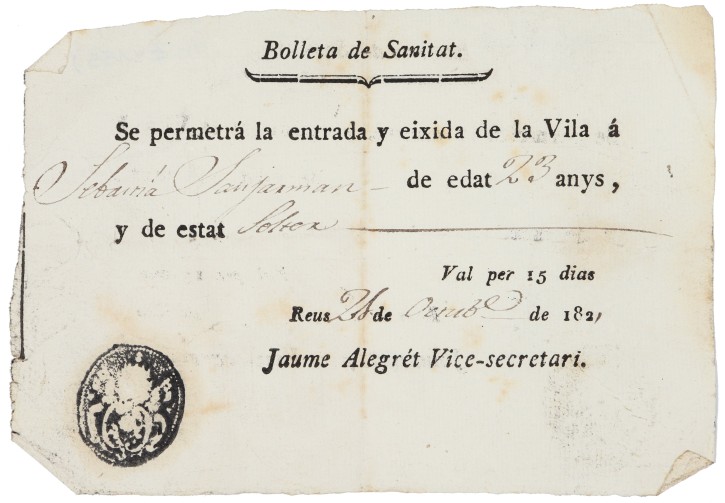 Bolleta de Sanitat.
Se permetrá la entrada y eixida de la Vila á
Sanjarman de edat 23 anys,
y de estat Solter
Val per 15 dias
Reus de de 1821
Jaume Alegrét Vice-secretari.